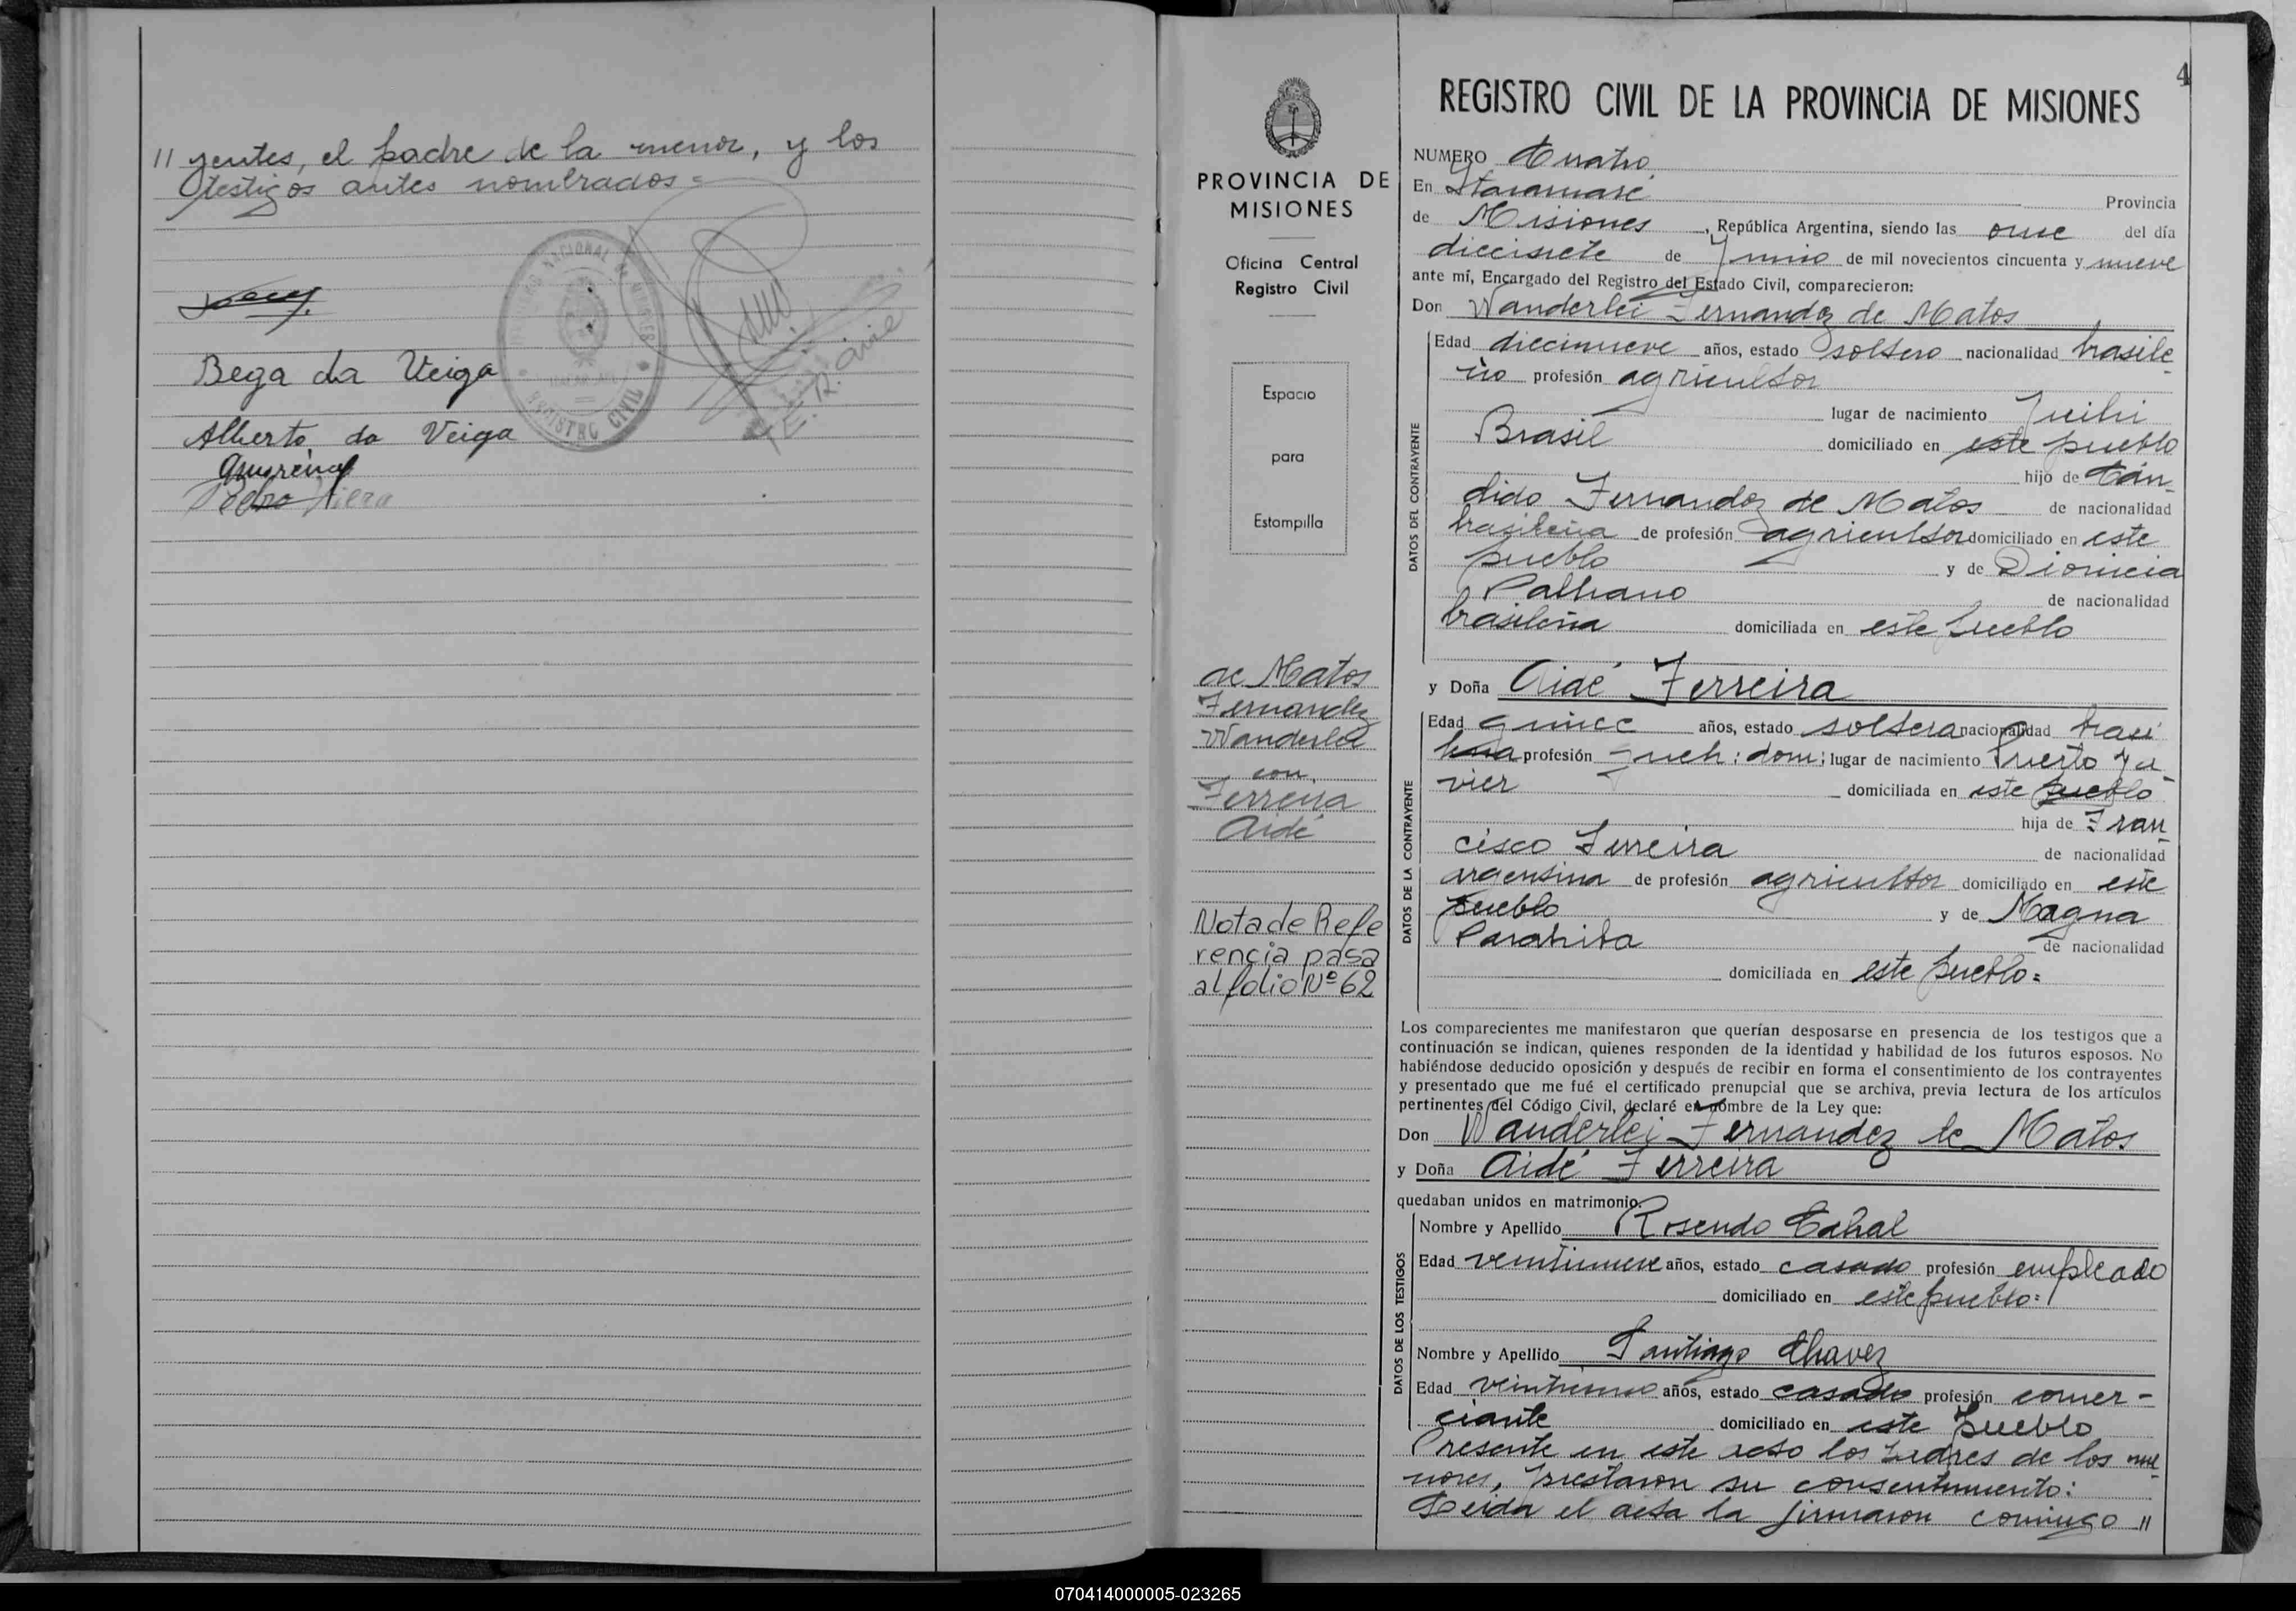 // yentes, el padre de la menor, y los
testigos antes nombrados =
REGISTRO CIVIL
Bega da Veiga
Alberto da Veiga
Pedro Viera
4
PROVINCIA DE
MISIONES
Oficina Central
Registro Civil
Espacio
para
Estampilla
de Matos
Fernandez
Wanderlei
con
Ferreira
Aidé
Nota de Refe
rencia pasa
al folio Nº 62
REGISTRO CIVIL DE LA PROVINCIA DE MISIONES
NUMERO Cuatro
En Itacaruaré Provincia
de Misiones, República Argentina, siendo las once del día
diecisiete de Junio de mil novecientos cincuenta y nueve
ante mí, Encargado del Registro del Estado Civil, comparecieron:
Don Wanderlei Fernandez de Matos
DATOS DEL CONTRAYENTE
Edad diecinueve años, estado soltero nacionalidad brasile
ño profesión agricultor
lugar de nacimiento Juihi
Brasil domiciliado en este pueblo
hijo de Cán-
dido Fernandez de Matos de nacionalidad
brasileña de profesión agricultor domiciliado en este
pueblo y de Dionicia
Palhano de nacionalidad
brasileña domiciliada en este pueblo
y Doña Aidé Ferreira
DATOS DE LA CONTRAYENTE
Edad quince años, estado soltera nacionalidad
profesión queh: dom: lugar de nacimiento Puerto Ja-
vier domiciliada en este pueblo
hija de Fran-
cisco Ferreira de nacionalidad
argentina de profesión agricultor domiciliado en este
pueblo y de Magna
Parahiba de nacionalidad
domiciliada en este pueblo =
Los comparecientes me manifestaron que querían desposarse en presencia de los testigos que a
continuación se indican, quienes responden de la identidad y habilidad de los futuros esposos. No
habiéndose deducido oposición y después de recibir en forma el consentimiento de los contrayentes
y presentado que me fué el certificado prenupcial que se archiva, previa lectura de los artículos
pertinentes del Código Civil, declaré en nombre de la Ley que:
Don Wanderlei Fernandez de Matos
y Doña Aidé Ferreira
quedaban unidos en matrimonio.
DATOS DE LOS TESTIGOS
Nombre y Apellido Rosendo Cabral
Edad veintinueve años, estado casado profesión empleado
domiciliado en este pueblo =
Nombre y Apellido Santiago Chavez
Edad años, estado casado profesión comer-
ciante domiciliado en este pueblo
Presente en este acto los padres de los me-
nores, prestaron su consentimiento:
Leida el acta la firmaron conmigo //
070414000005-023265